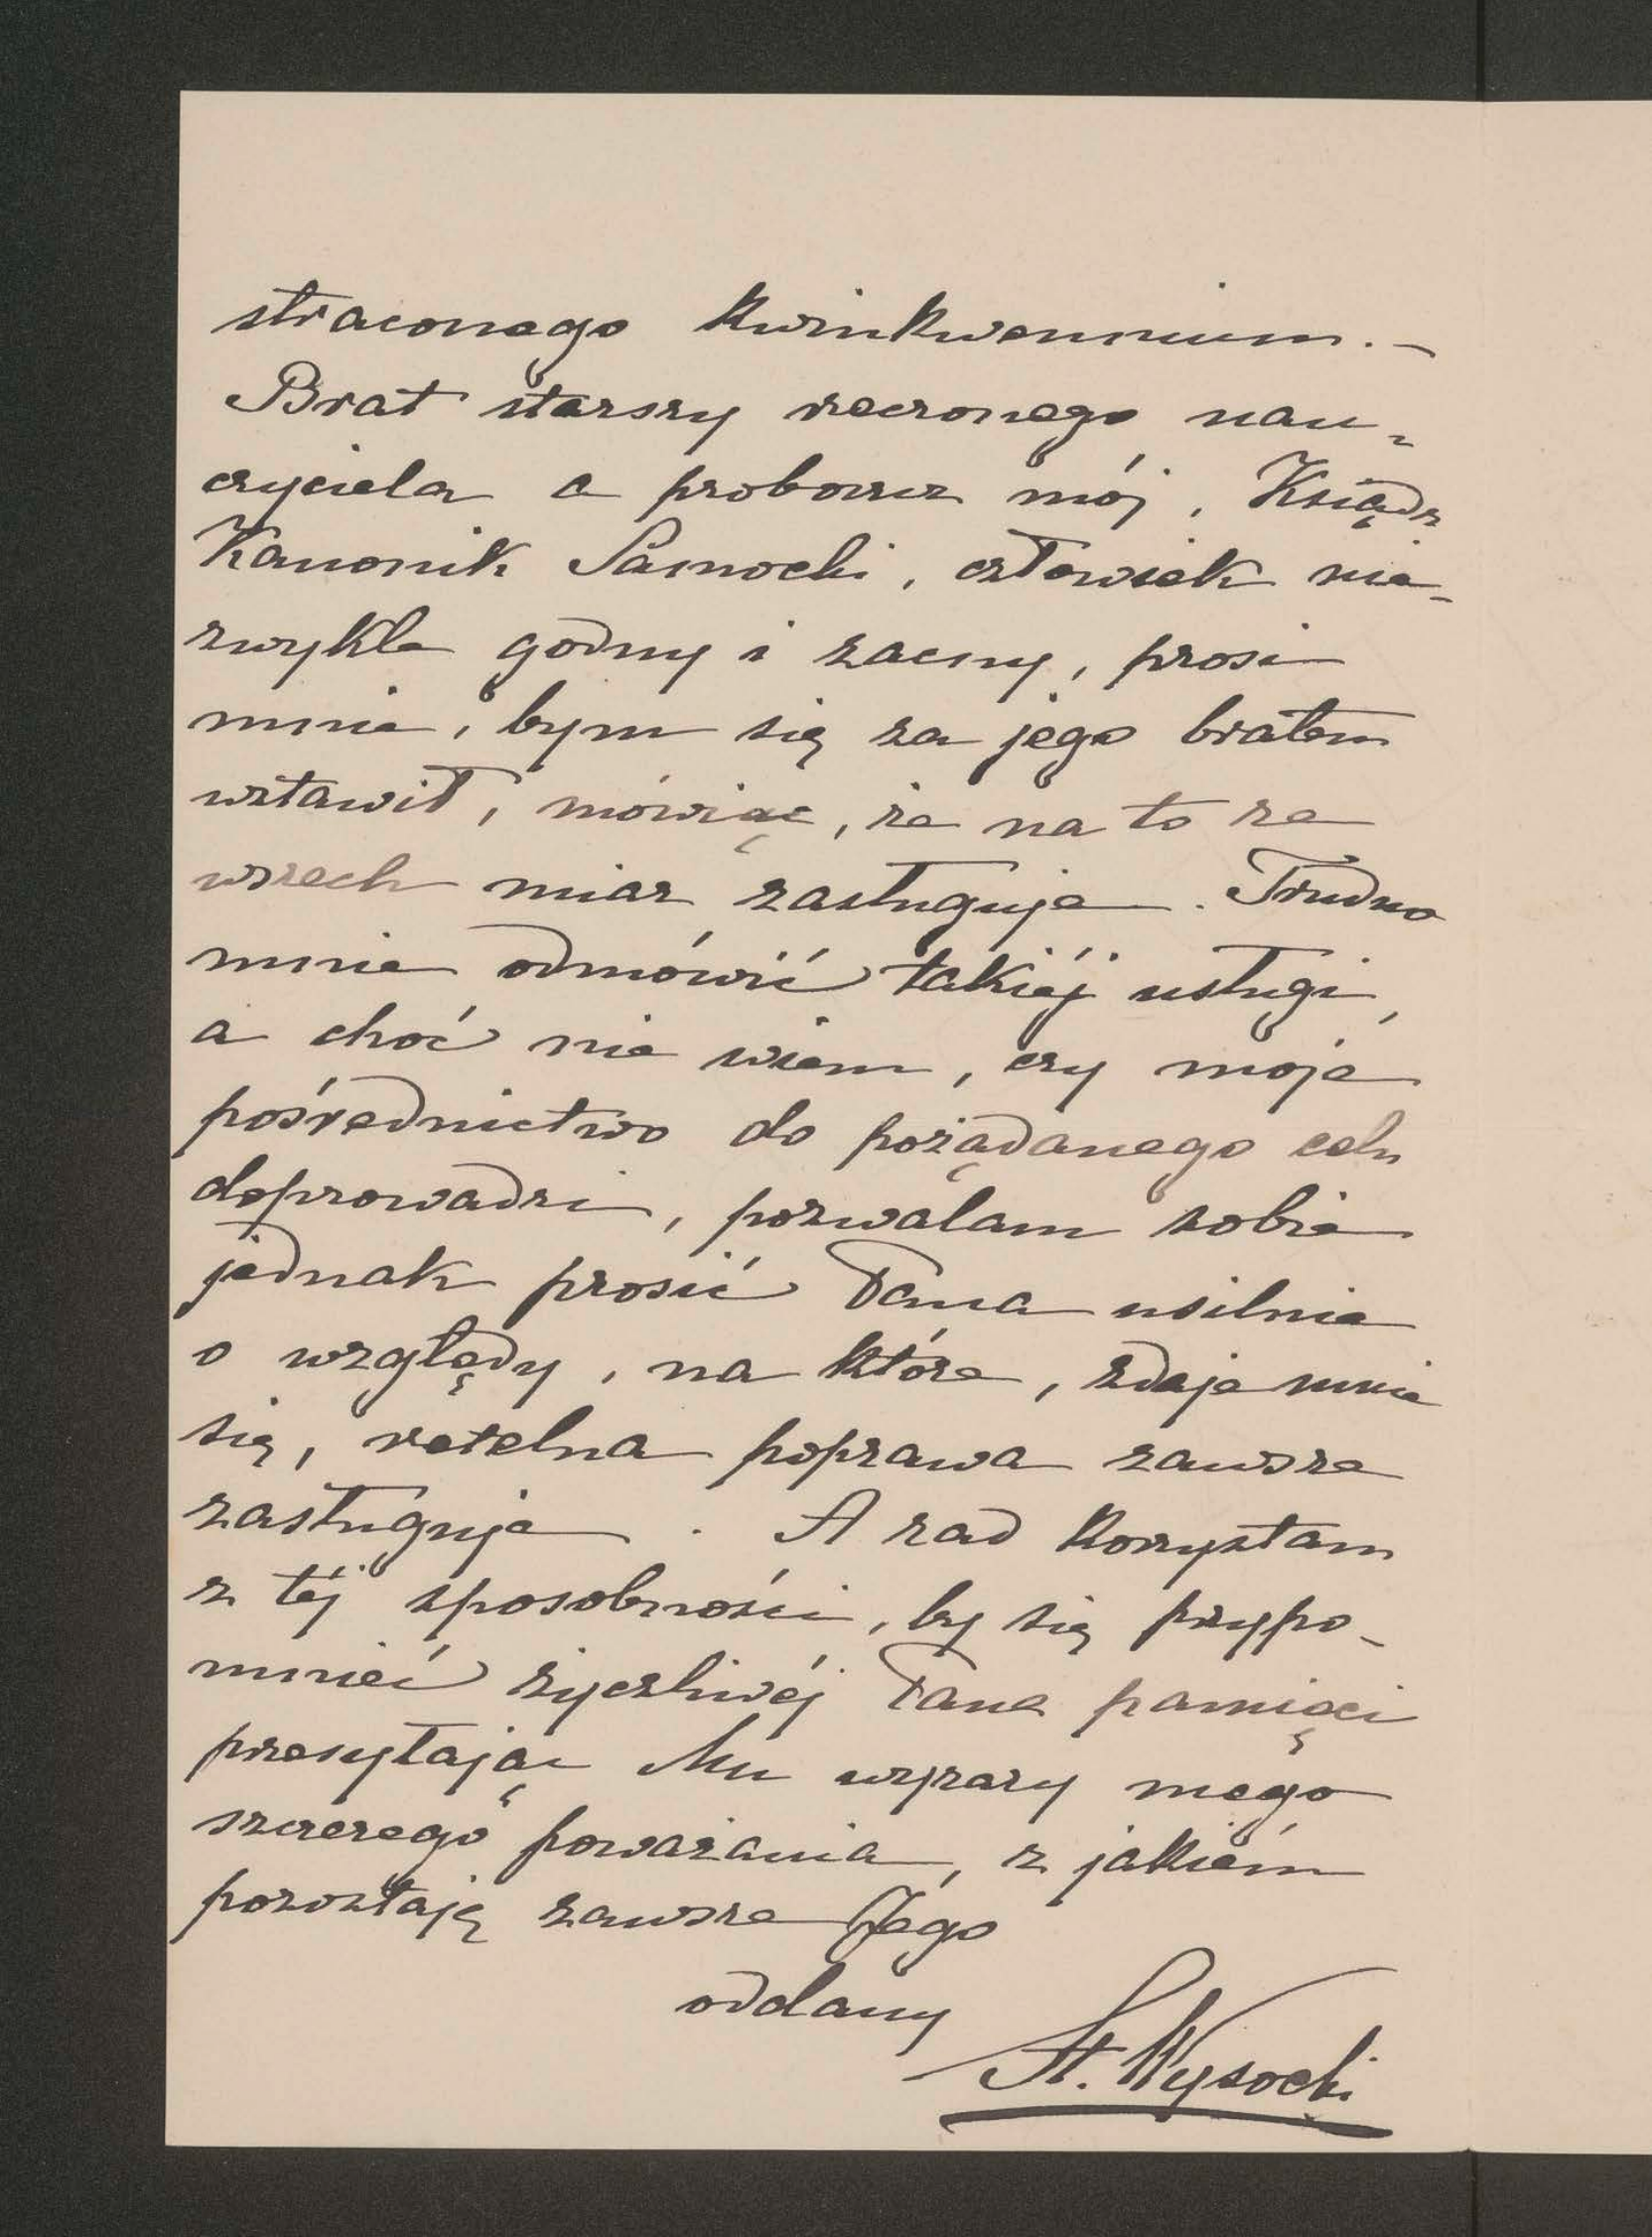 straconego Kwinkwennium. –
Brat starszy rzeczonego nau-
czyciela a proboszcz mój, Ksiądz
Kanonik Sanocki, człowiek nie-
zwykle godny i zacny, prosi
mnie, bym się za jego bratem
wstawił, mówiąc, że na to ze
wszech miar zasługuje. Trudno
mnie odmówić takiéj usługi,
a choć nie wiem, czy moje
pośrednictwo do pożądanego celu
doprowadzi, pozwalam sobie
jednak prosić Pana usilnie
o względy, na które, zdaje mnie
się, rzetelna poprawa zawsze
zasługuje. A rad korzystam
z téj sposobności, by się przypo-
mnieć życzliwéj Pana pamięci
przesyłając Mu wyrazy mego
szczerego poważania, z jakiém
pozostaję zawsze Jego
oddany
St. Wysocki